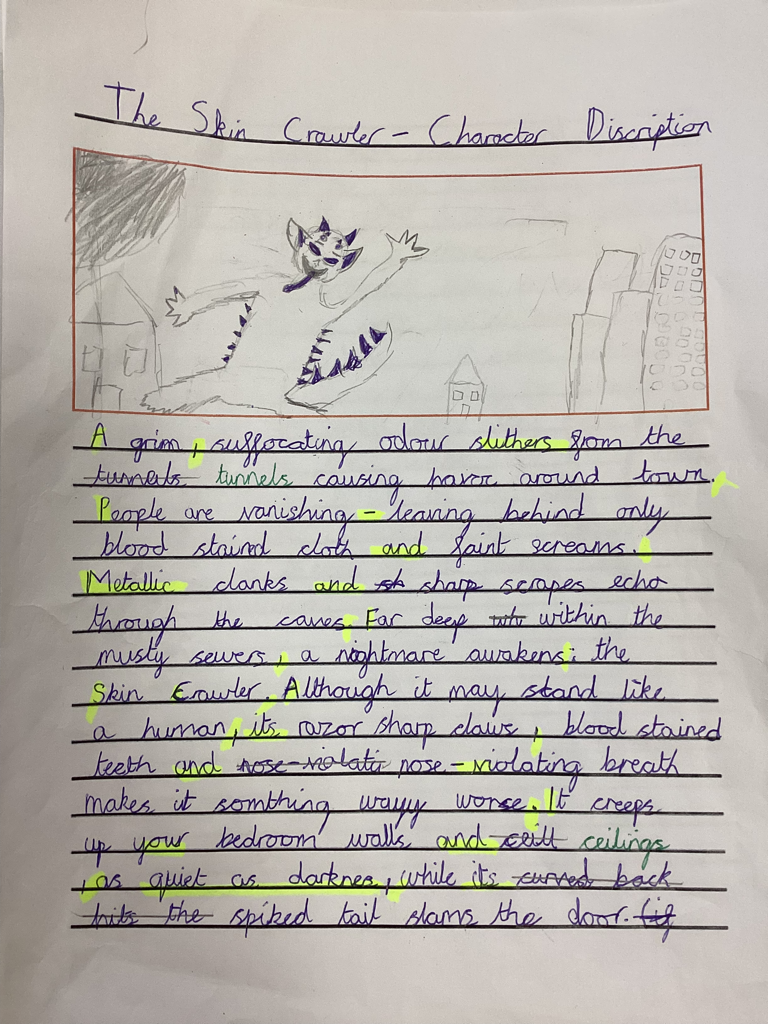 The Skin Crawler - Character Discription
A grim, suffocating odour slithers from the
tunnels tunnels causing havoc around town.
People are vanishing - leaving behind only
blood stained cloth and faint screams.
Metallic clanks and sh sharp scrapes echo
through the caves. Far deep wh within the
musty sewers, a nightmare awakens: the
Skin Crawler. Although it may stand like
a human, its razor sharp claws, blood stained
teeth and nose-violati nose-violating breath
makes it somthing wayy worse. It creeps
up your bedroom walls and ceill ceilings
, as quiet as darknes, while its curved back
hits the spiked tail slams the door.